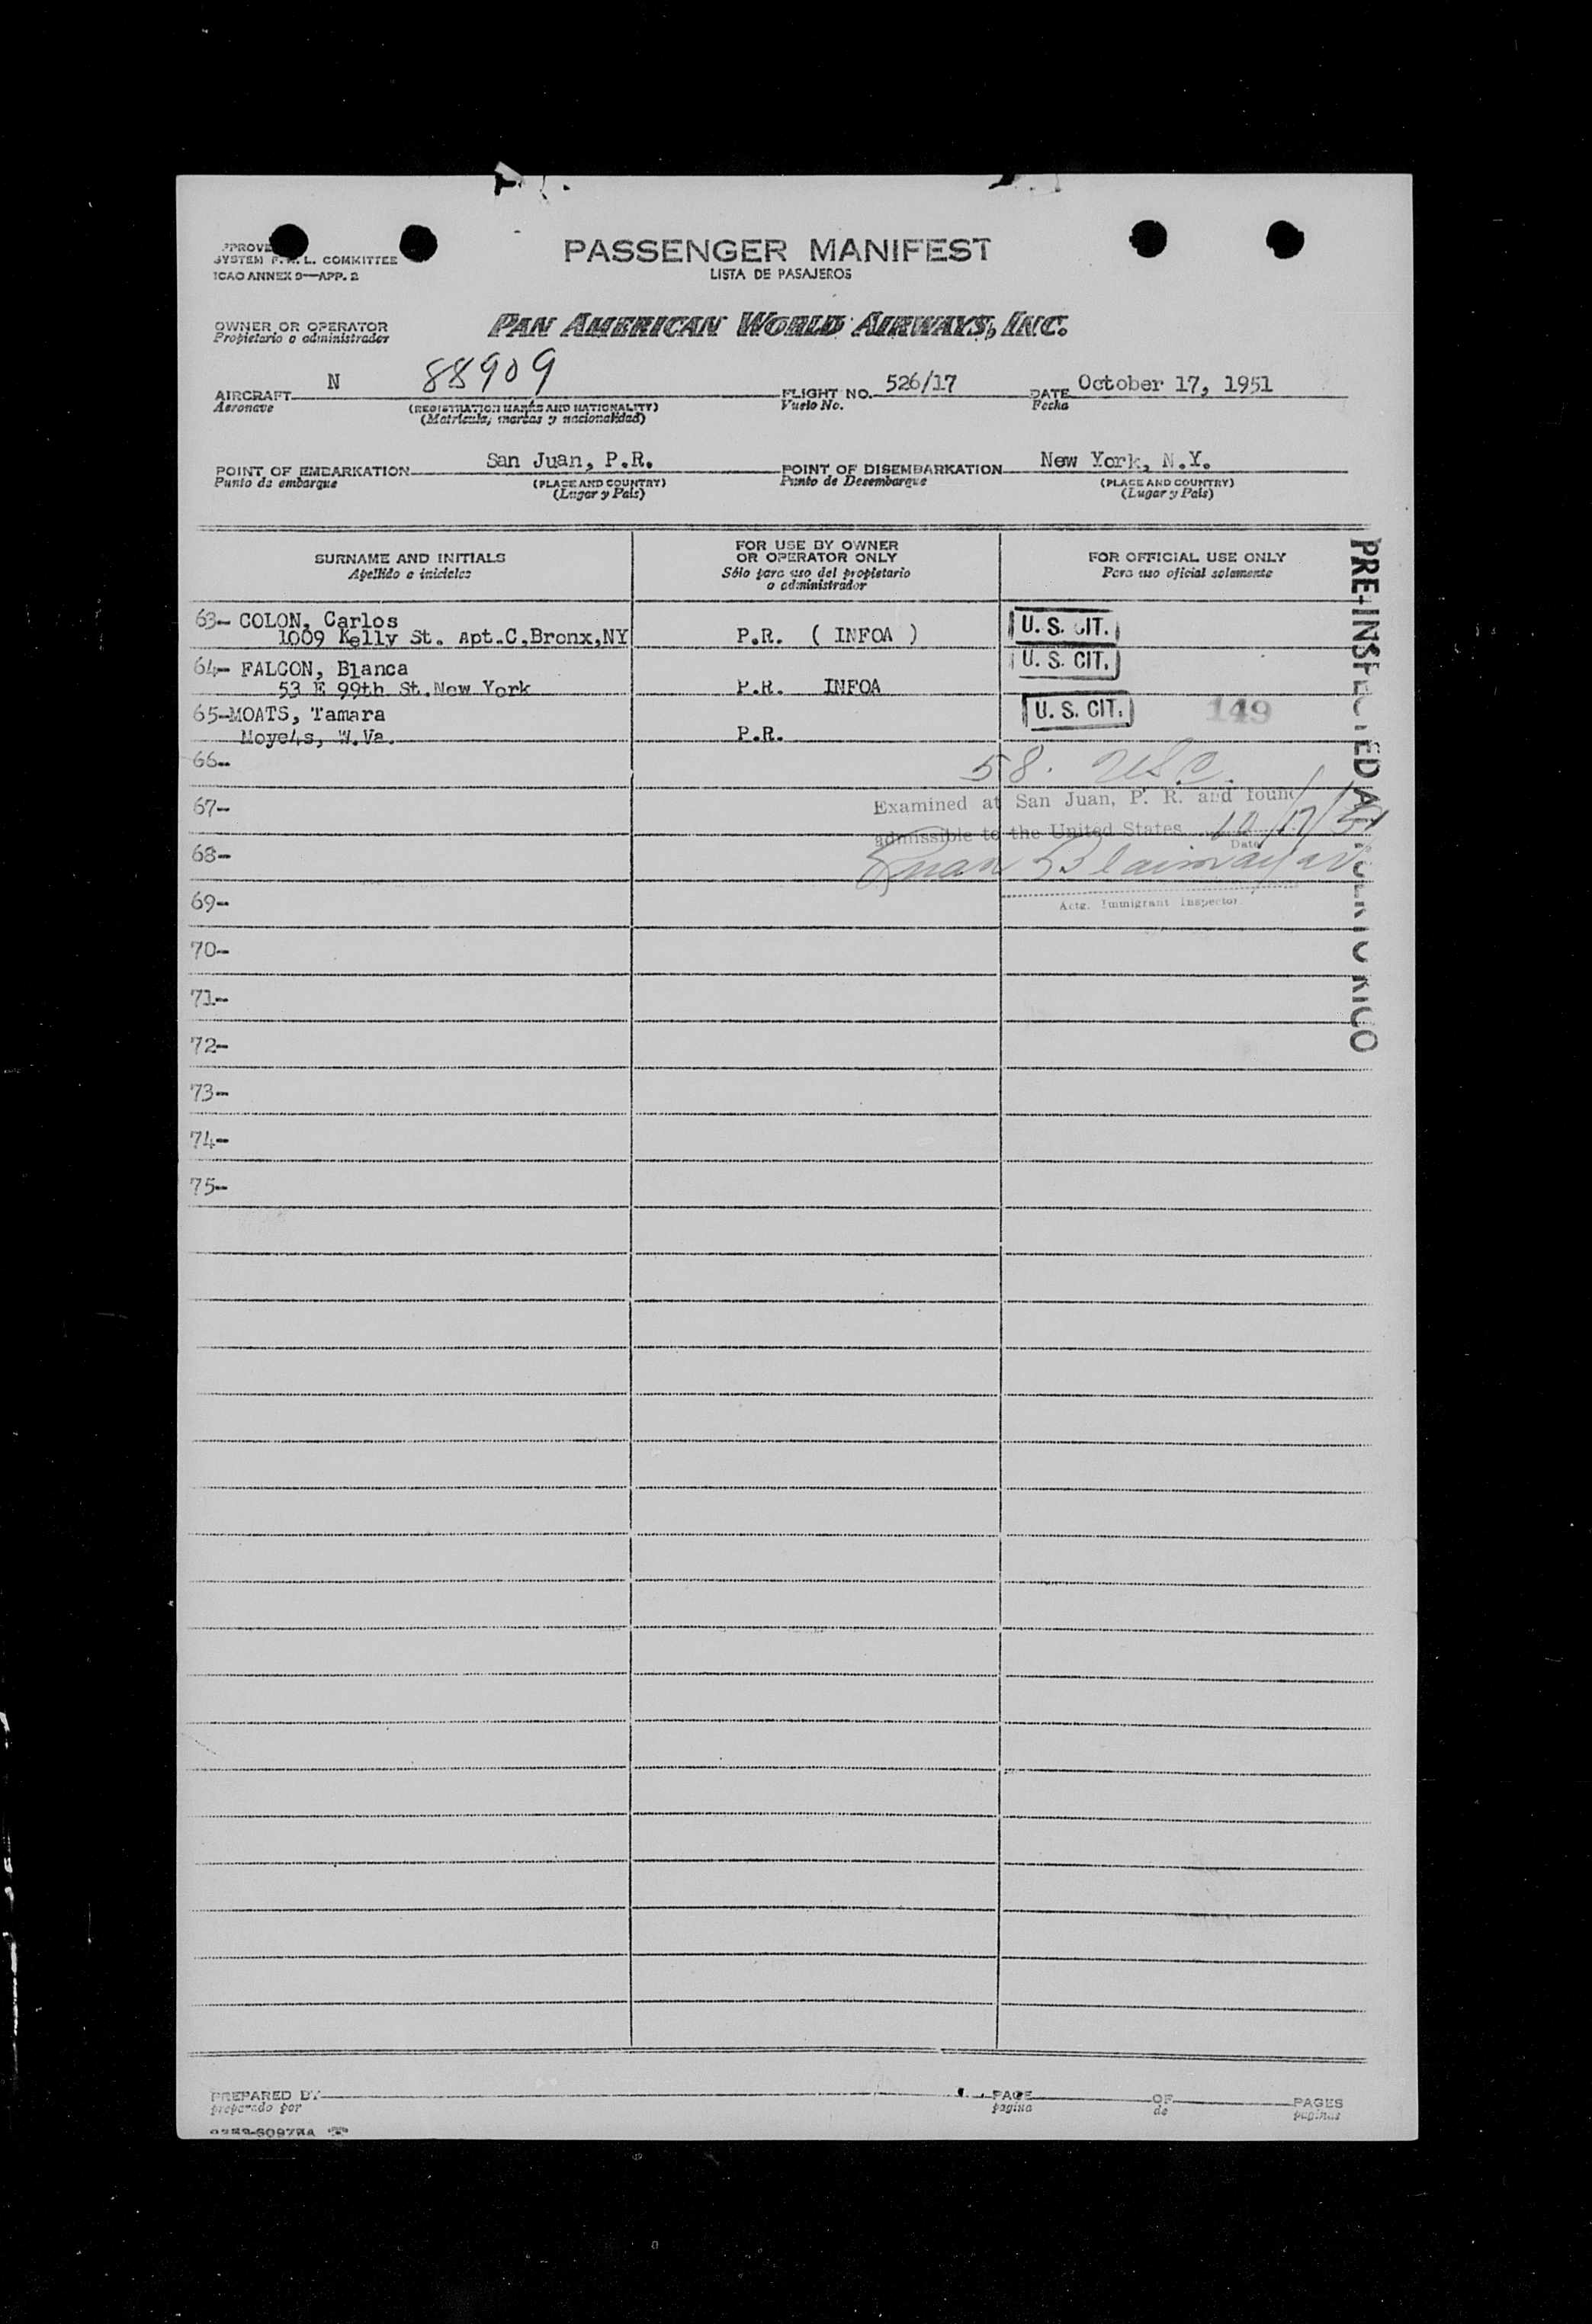 PASSENGER MANIFEST
LISTA DE PASAJEROS
SYSTEM F.A.L. COMMITTEE
ICAO ANNEX 9—APP. 2
OWNER OR OPERATOR
Propietario o administrador
PAN AMERICAN WORLD AIRWAYS, INC.
AIRCRAFT N 88909
Aeronave
(REGISTRATION MARKS AND NATIONALITY)
(Matricula, marcas y nacionalidad)
FLIGHT NO. 526/17
Vuelo No.
DATE October 17, 1951
Fecha
POINT OF EMBARKATION San Juan, P.R.
Punto de embarque
(PLACE AND COUNTRY)
(Lugar y Pais)
POINT OF DISEMBARKATION New York, N.Y.
Punto de Desembarque
(PLACE AND COUNTRY)
(Lugar y Pais)
SURNAME AND INITIALS
Apellido e iniciales
FOR USE BY OWNER
OR OPERATOR ONLY
Sólo para uso del propietario
o administrador
FOR OFFICIAL USE ONLY
Para uso oficial solamente
63- COLON, Carlos
1009 Kelly St. Apt.C,Bronx,NY P.R. ( INFOA ) U. S. CIT.
64- FALCON, Blanca
53 E 99th St.New York P.R. INFOA U. S. CIT.
65-MOATS, Tamara
W.Va. P.R. U. S. CIT. 149
66-
58. USC.
67-
Examined at San Juan, P. R. and found
admissible to the United States 10/17/51
Date
68-
69-
Actg. Immigrant Inspector
70-
71-
72-
73-
74-
75-
PRE-INSPECTED AT PUERTO RICO
PREPARED BY
preparado por
PAGE
pagina
OF
de
PAGES
paginas